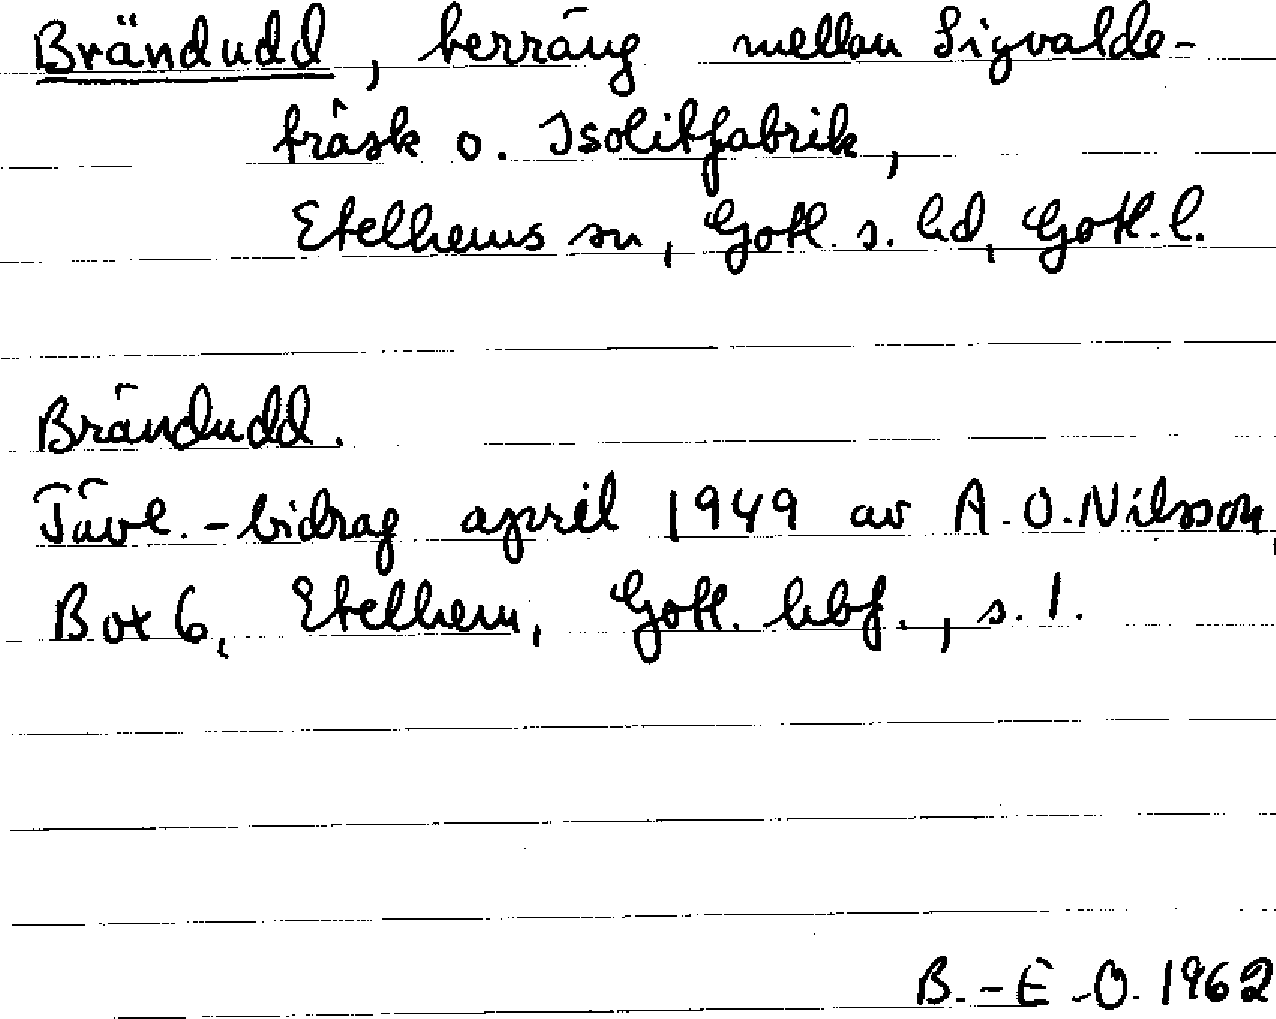 Brändudd, terräng mellan Sigvalde-
träsk o. Isolitfabrik,
Etelhems sn, Gotl. s. hd, Gotl. l.
Brändudd.
Tävl.-bidrag april 1949 av A. O. Nilsson,
Box 6, Etelhem, Gotl. hbf., s. 1.
B.-E.-O. 1962